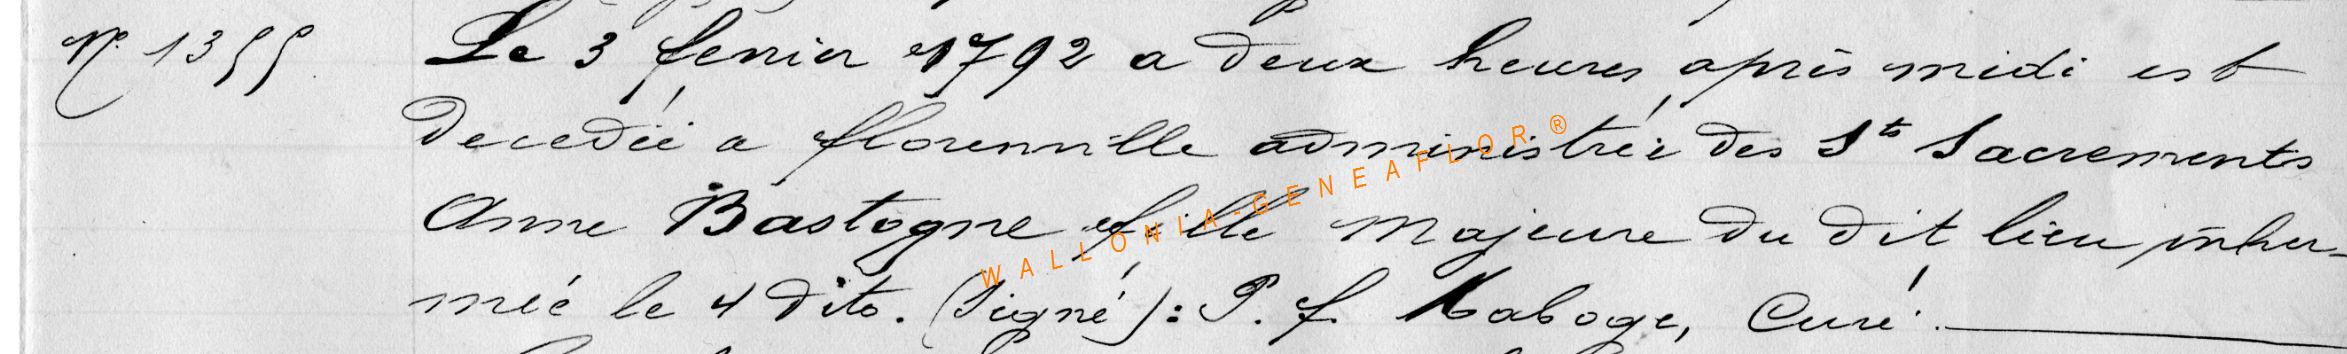 N° 1355
Le 3 fevrier 1792 a deux heures après midi est
decedée a florenville administrée des Sts Sacrements
Anne Bastogne fille majeure du dit lieu inhu-
mée le 4 dito. (Signé): P. f. Naboge, Curé.
WALLONIA-GENEAFLOR®